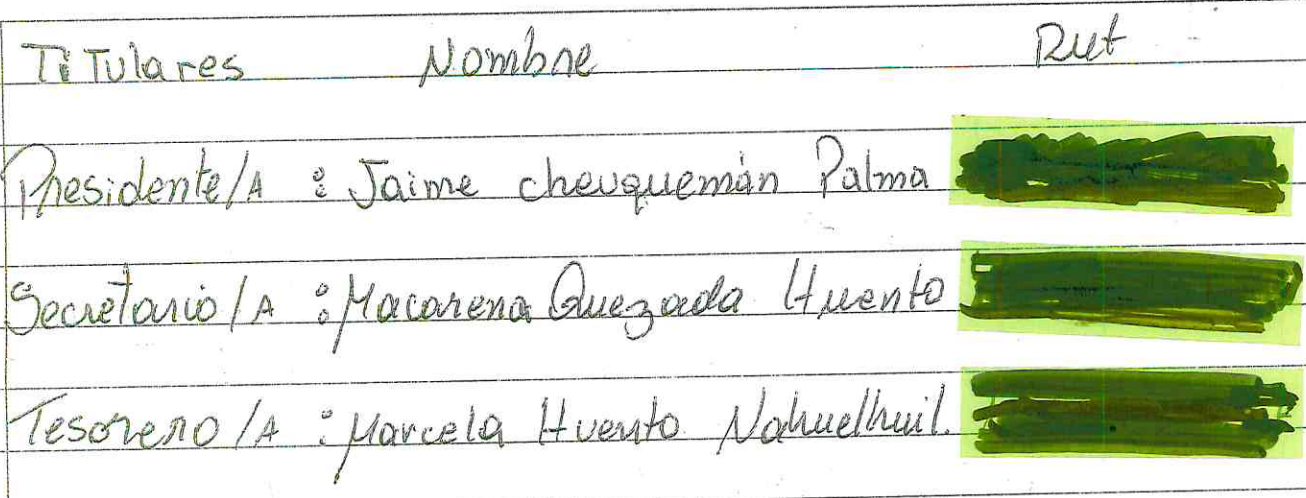 Titulares Nombre Rut
Presidente/A : Jaime cheuquemán Palma
Secretario/A : Macarena Quezada Huento
Tesorero/A : Marcela Huento Nahuelhuil.